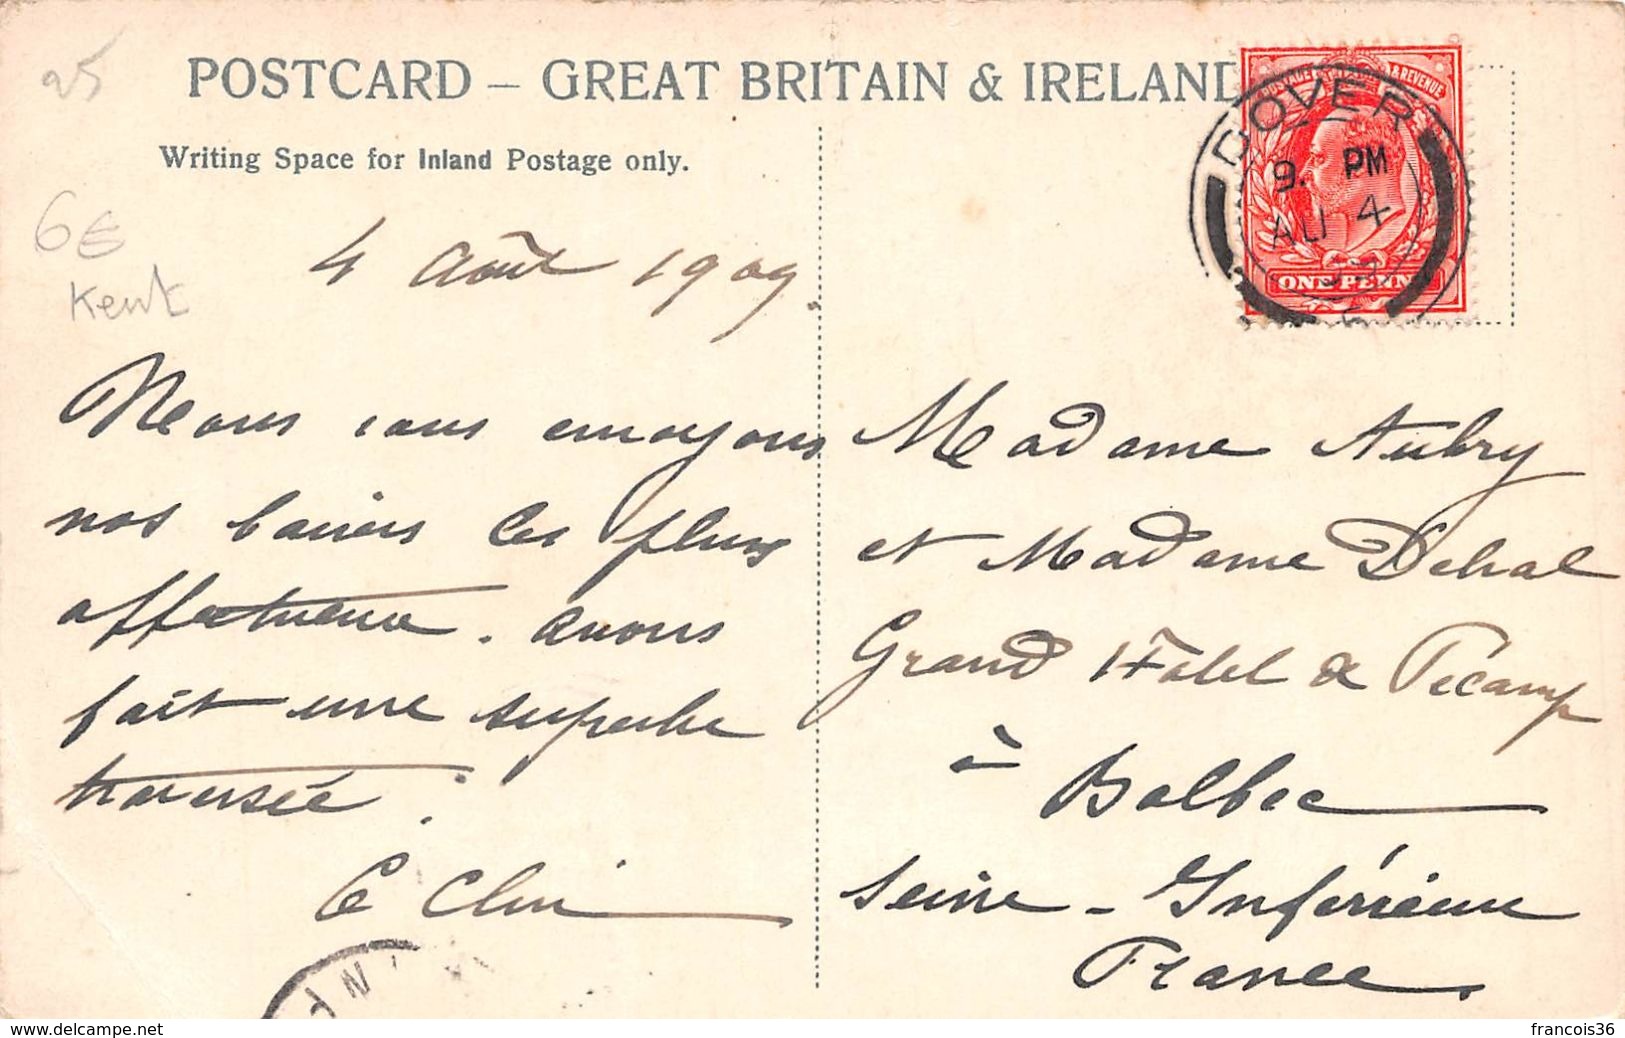 25
POSTCARD – GREAT BRITAIN & IRELAND
Writing Space for Inland Postage only.
6€
Kent
4 Août 1909.
Nous vous envoyons
nos baisers les plus
affectueux. avons
fait une superbe
traversée.
POSTAGE & REVENUE
ONE PENNY
DOVER
9. PM
AU 4
09
Madame Aubry
et Madame
Grand Hotel de Fécamp
à Bolbec
Seine-Inférieure
France.
www.delcampe.net
francois36